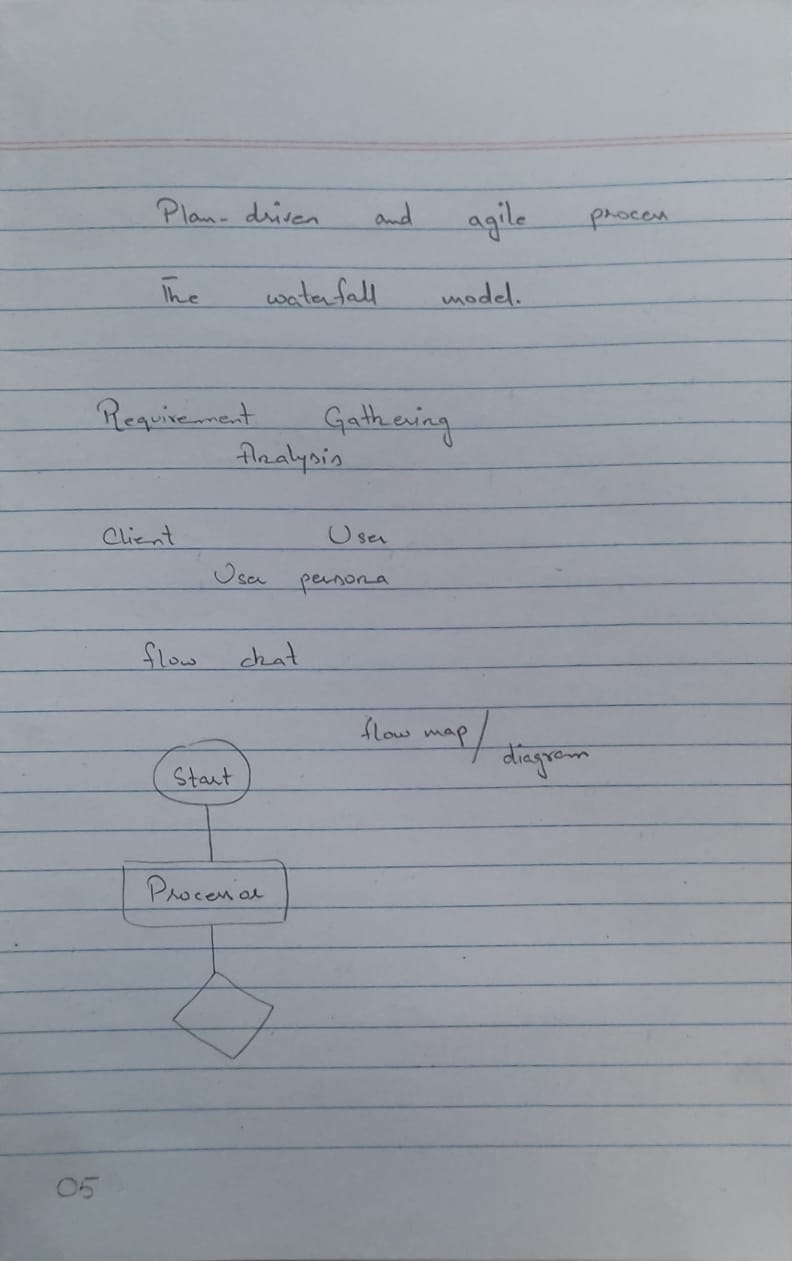 Plan-driven and agile process
The waterfall model.
Requirement Gathering
Analysis
Client User
User persona
flow chat
flow map/
diagram
Start
Processor
05